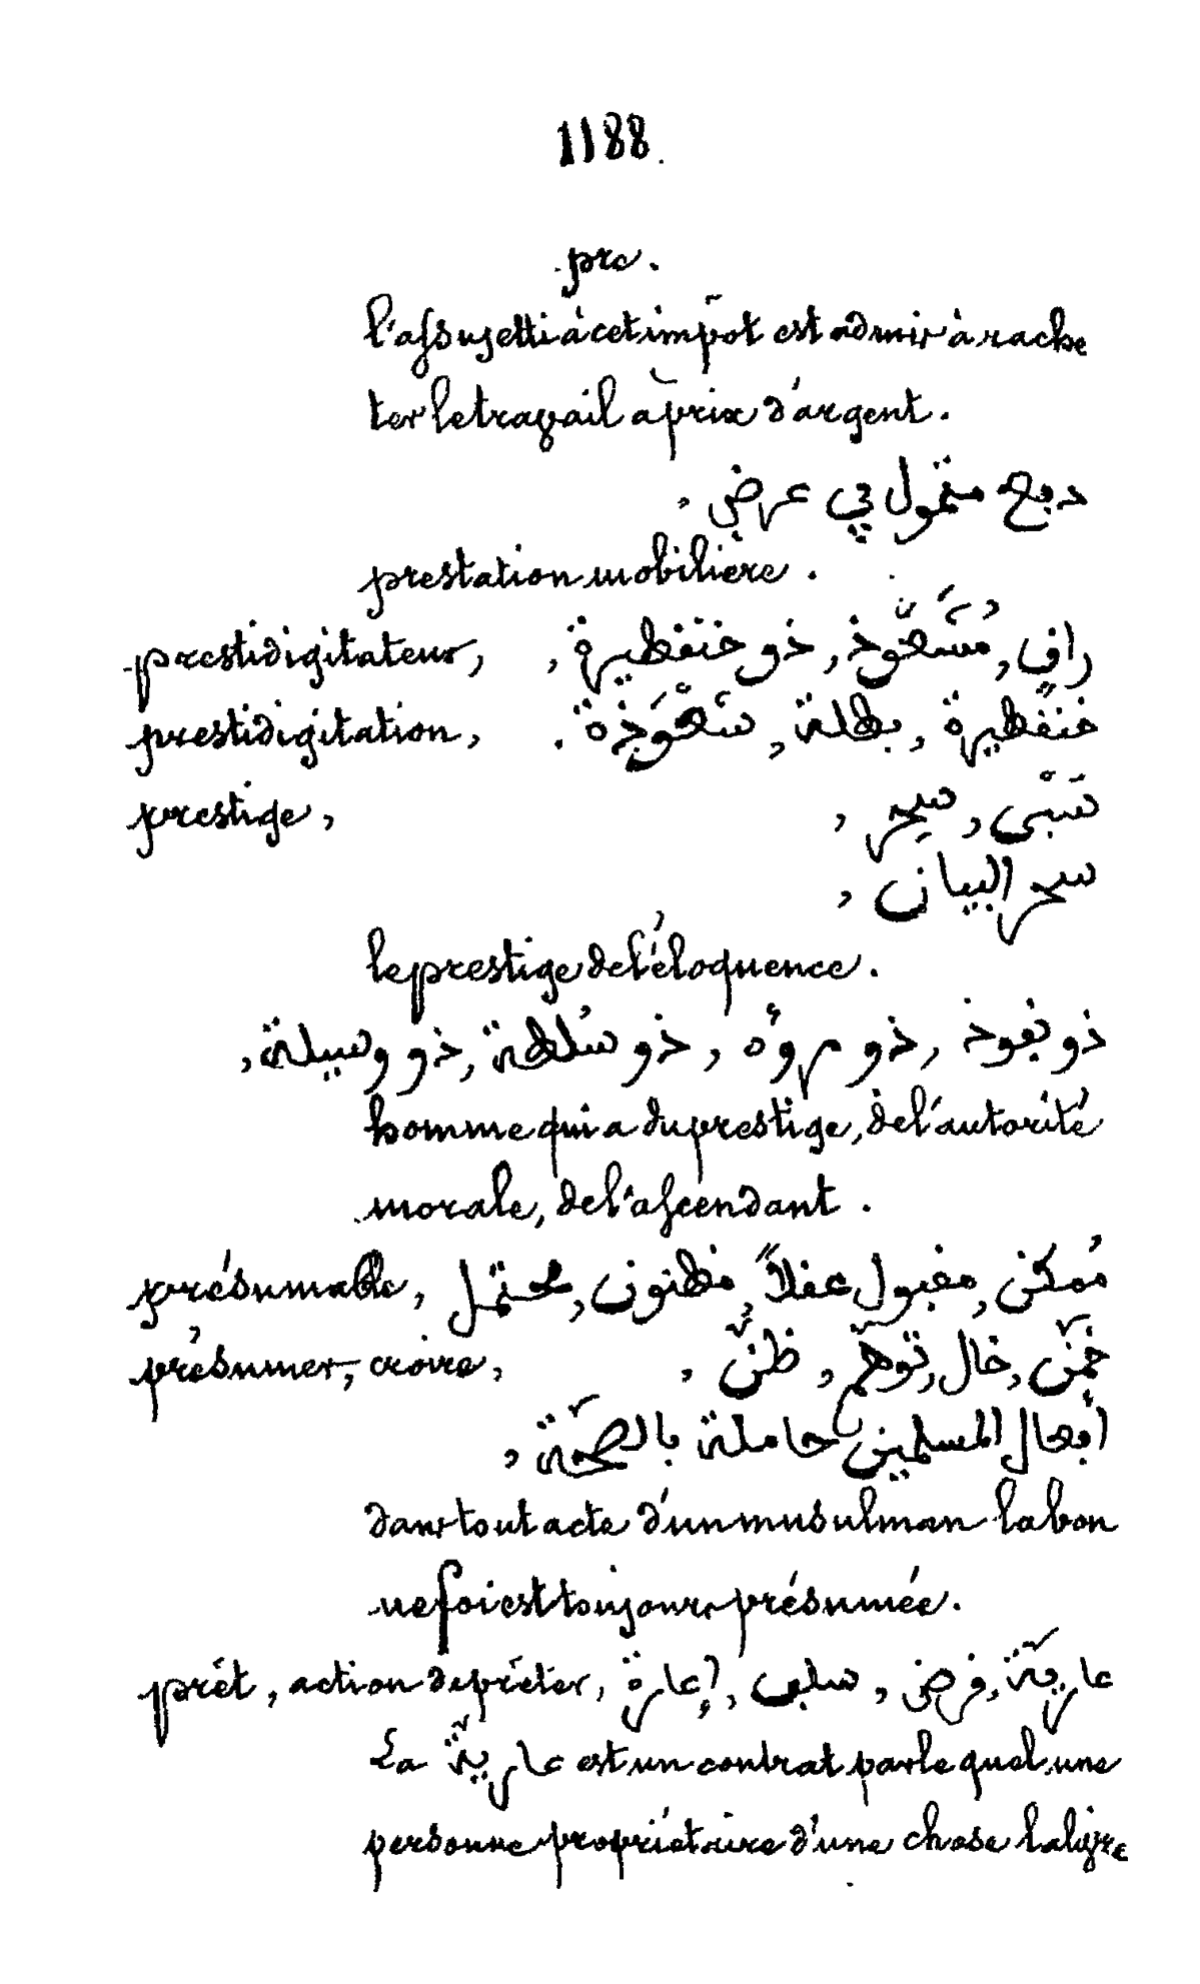 1188.
pre.
l'assujetti à cet impôt est admis à rache
ter le travail à prix d'argent.
دبع متمول في عرض,
prestation mobilière.
prestidigitateur, راف, مُشَعّوذ, ذو خنفطيرة,
prestidigitation, خنفطيرة, بطلة, شَعْوَذة.
prestige, سحر,
سحر البيان,
le prestige de l'éloquence.
ذو نفوذ, ذو مروءة, ذو سُلطة, ذو وسيلة,
homme qui a du prestige, de l'autorité
morale, de l'ascendant.
présumable, مُمكن, مقبول عقلاً, مظنون, محتمل
présumer, croire, خمّن, خال, توهّم, ظنّ,
أفعال المسلمين حاملة بالصحّة,
dans tout acte d'un musulman la bon
ne foi est toujours présumée.
prêt, action de prêter, عاريّة, قرض, سلف, إعارة
La عاريّة est un contrat par le quel une
personne propriétaire d'une chose la livre